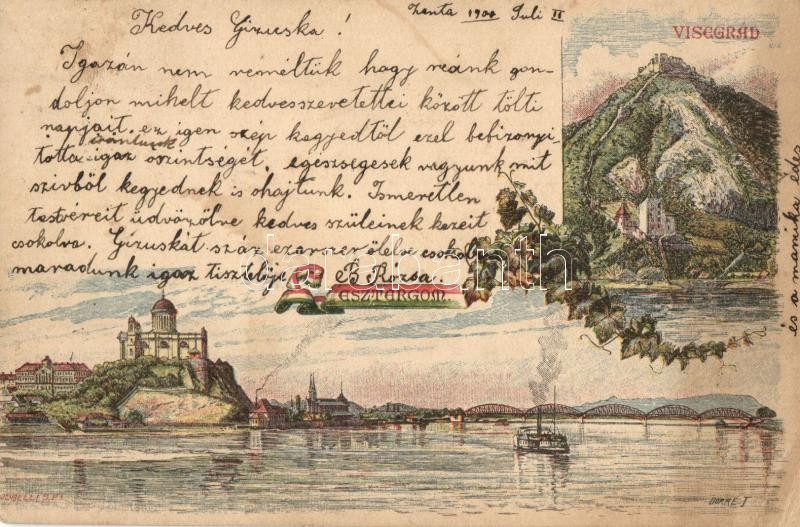 Kedves Gizuska!
Zenta 1900 Juli 11
VISEGRÁD
Igazán nem reméltük hogy reánk gon-
doljon mihelt kedvesszevetettei között tölti
napjait, ez igen szép kegyedtöl ezel bebizonyi-
irántunk
totta igaz öszintségét, egészségesek vagyunk mit
szivböl kegyednek is ohajtunk. Ismeretlen
testvéreit üdvözölve kedves szüleinek kezeit
csokolva. Gizuskát száz ezerszer ölelve csokol
maradunk igaz tisztelöje B Rozsa.
ESZTERGOM.
és a mamika édes
darabanth
DÖRRE T